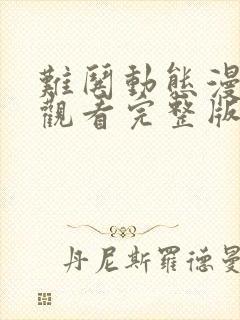 難鬪動態漫
觀看完整版
丹尼斯羅德曼